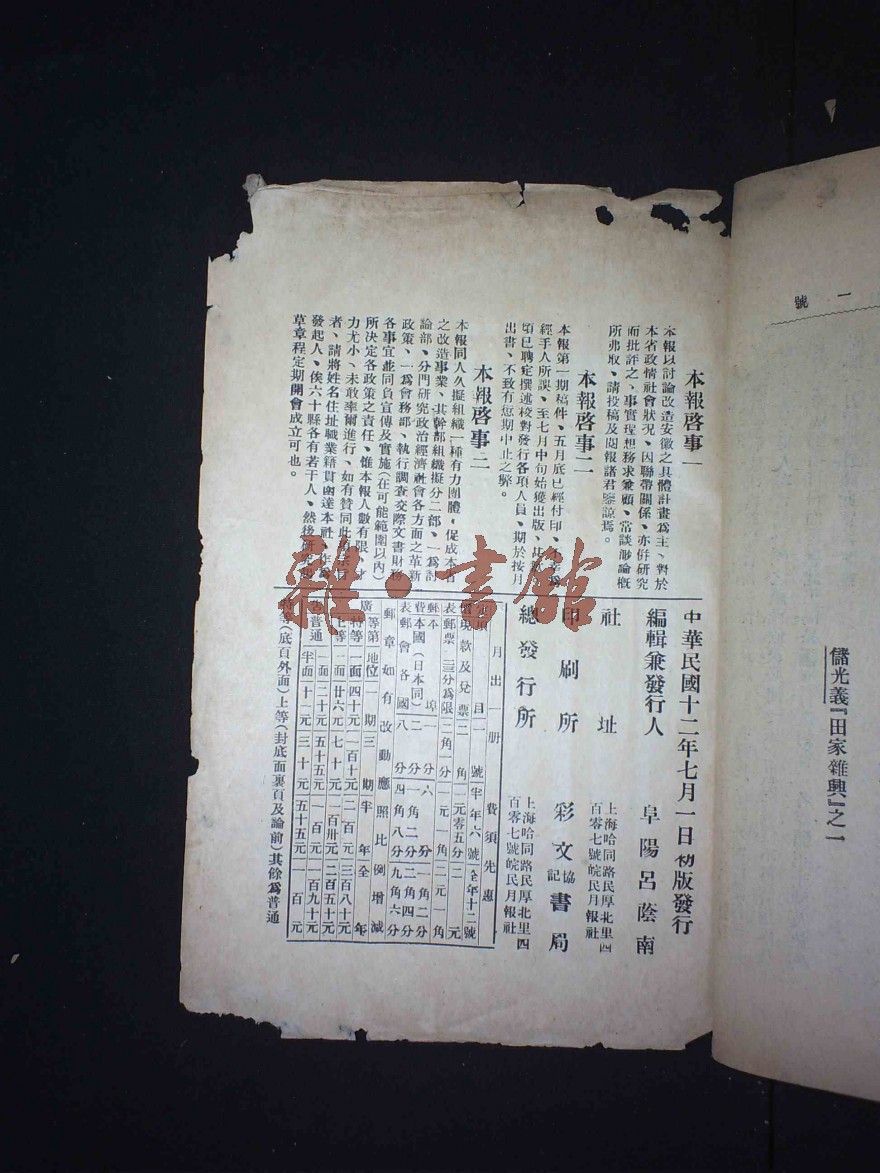 本報啓事一
本報以討論改造安徽之具體計畫為主、對於
本省政情社會狀況、因聯帶關係、亦倂研究
而批評之、事實理想務求兼顧、常談渺論概
所弗取、請投稿及閱報諸君鑒諒焉。
本報啓事二
本報第一期稿件、五月底已經付印、不幸為
經手人所誤、至七月中旬始獲出版、
頃已聘定撰述校對發行各項人員、期於按月
出書、不致有愆期中止之弊。
本報啓事二
本報同人久擬組織一種有力團體，促成本省
之改造事業、其幹部組織擬分二部、一為討
論部、分門研究政治經濟社會各方面之革新
政策、一為會務部、執行調查交際文書財務
各事宜並同負宣傳及實施(在可能範圍以內)
所決定各政策之責任、惟本報人數有限、才
力尤小、未敢率爾進行、如有贊同此
者、請將姓名住址職業籍貫函達本社、作為
發起人、俟六十縣各有若干人、然後研究
草章程定期開會成立可也。
中華民國十二年七月一日初版發行
編輯兼發行人 阜陽呂蔭南
社址 上海哈同路民厚北里四百零七號皖民月報社
印刷所 彩文協記書局
總發行所 上海哈同路民厚北里四百零七號皖民月報社
月出一册 費須先惠
項目 一號 半年六號 全年十二號
現款及兌票 二角 一元零五分 二元
郵票三分為限 二角一分 一元一角 二元一角
本埠 一分 六分 一角二分
本國(日本同) 二分 一角二分 二角四分
郵會各國 八分 四角八分 九角六分
郵章如有改動應照比例增減
等第 地位 一期 三期 半年 全年
特等 一面 四十元 一百十元 二百元 三百八十元
上等 一面 廿六元 七十元 一百卅元 二百五十元
普通 一面 二十元 五十五元 一百元 一百九十元
半面 十一元 三十元 五十五元 一百元
特等(底頁外面)上等(封底面裏頁及論前)其餘為普通
雜·書館
一號
儲光義『田家雜興』之一